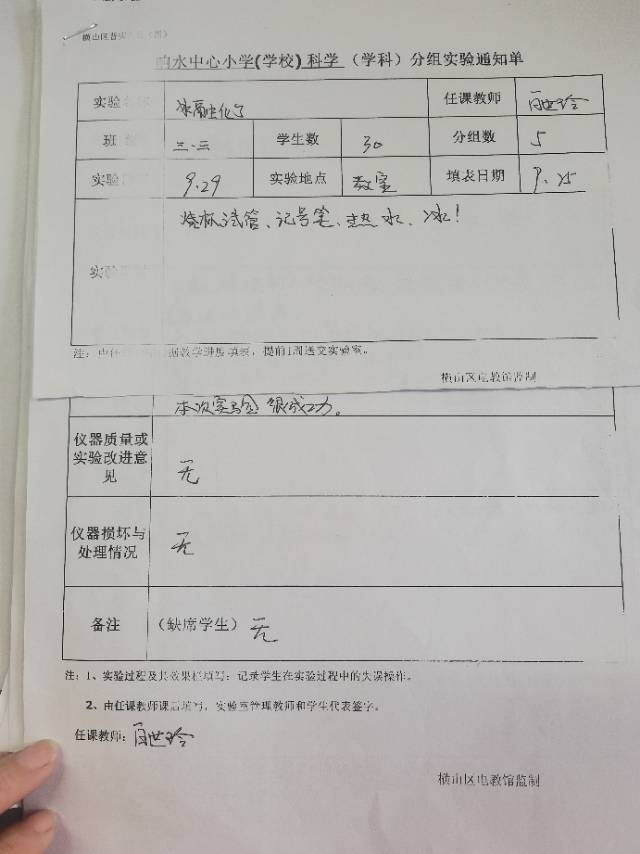 横山区普实
响水中心小学(学校) 科学 （学科）分组实验通知单
实验 冰融化了 任课教师
班 三.三 学生数 30 分组数 5
实验 9.29 实验地点 教室 填表日期 9.25
烧杯、试管、记号笔、热水、冰！
实验
注： 由任 据教学进度填表，提前1周送交实验室。
横山区电教馆监制
本次实验很成功。
仪器质量或
实验改进意
见 无
仪器损坏与
处理情况 无
备注 （缺席学生）无
注：1、实验过程及其效果栏填写：记录学生在实验过程中的失误操作。
2、由任课教师课后填写，实验室管理教师和学生代表签字。
任课教师：
横山区电教馆监制